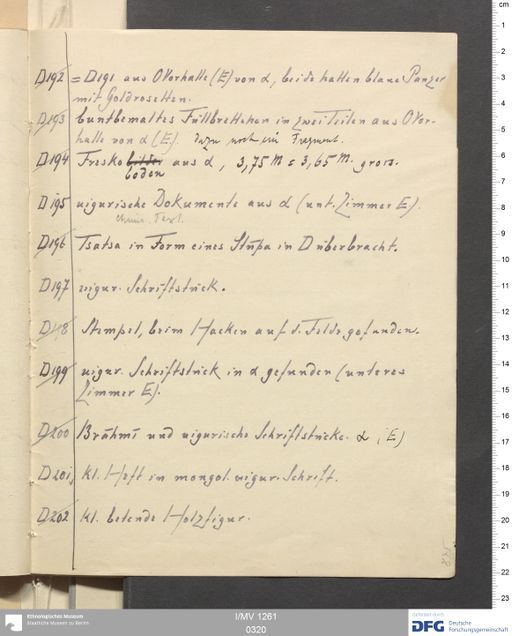 D192 = D191 aus O Vorhalle (E) von α, beide hatten blaue Panzer
mit Goldrosetten.
D193 buntbemaltes Füllbrettchen in zwei Teilen aus O Vor-
halle von α (E). dazu noch ein Fragment.
D194 Freskobilder aus α, 3,75 m = 3,65 m. gross.
boden
D195 uigurische Dokumente aus α (unt. Zimmer E).
chines. Text.
D196 Tsatsa in Form eines Stūpa in überbracht.
D197 uigur. Schriftstück.
D198 Stempel, beim Hacken auf d. Felde gefunden.
D199 uigur. Schriftstück in α gefunden (unteres
Zimmer E).
D200 Brāhmī und uigurische Schriftstücke. α (E)
D201, kl. Heft in mongol. uigur. Schrift.
D202 kl. betende Holzfigur.
Ethnologisches Museum
Staatliche Museen zu Berlin
I/MV 1261
0320
gefördert durch
DFG Deutsche
Forschungsgemeinschaft
cm
1
2
3
4
5
6
7
8
9
10
11
12
13
14
15
16
17
18
19
20
21
22
23